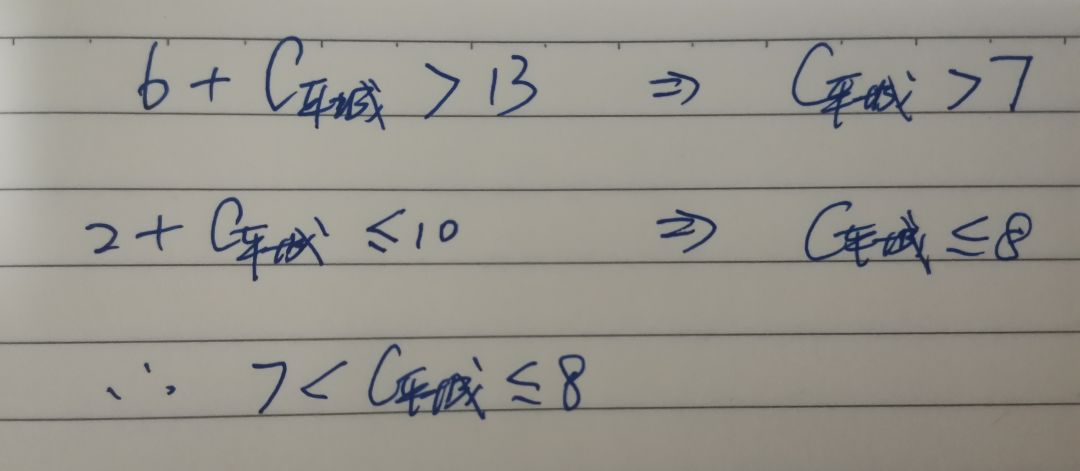 6 + C平城 > 13 ⇒ C平城 > 7
2 + C平城 ≤ 10 ⇒ C平城 ≤ 8
∴ 7 < C平城 ≤ 8